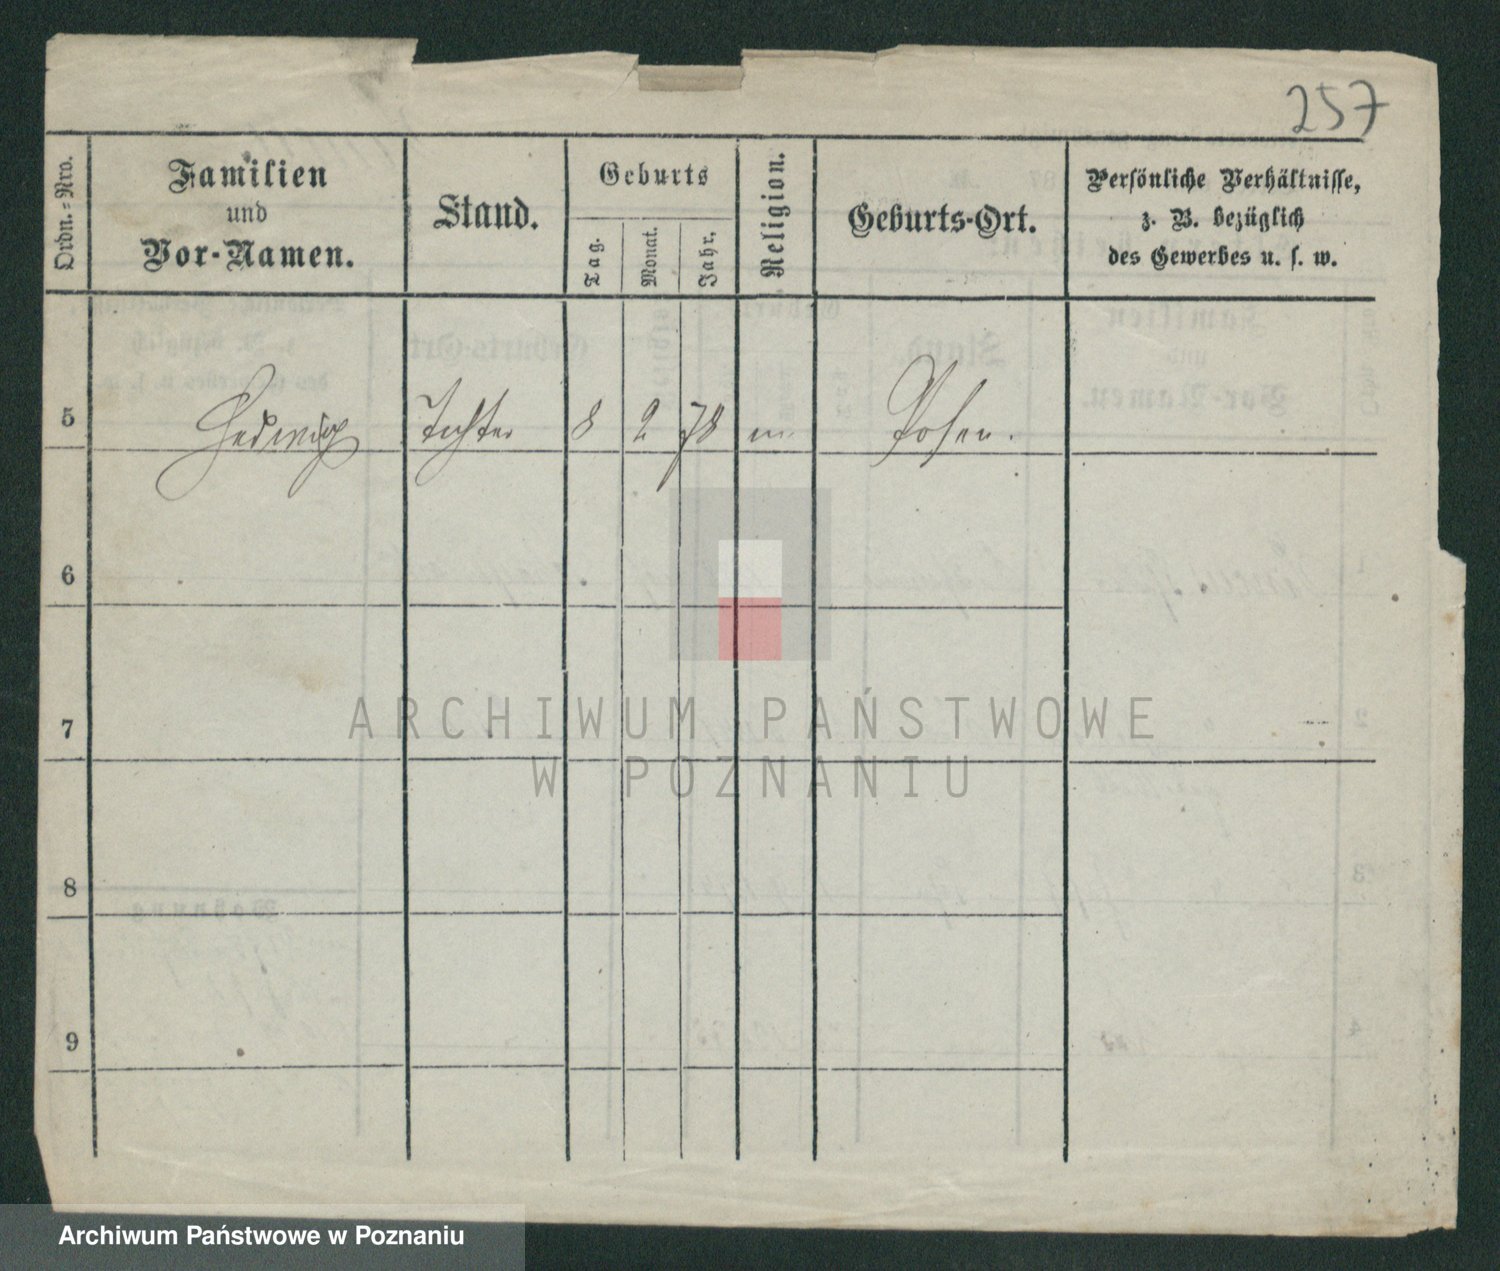 257
Ordn.-Nro.
Familien
und
Vor-Namen.
Stand.
Geburts
Tag.
Monat.
Jahr.
Religion.
Geburts-Ort.
Persönliche Verhältnisse,
z. B. bezüglich
des Gewerbes u. s. w.
5 Hedwig Tochter 8 2 78 Posen.
6
7
8
9
ARCHIWUM PAŃSTWOWE
W POZNANIU
Archiwum Państwowe w Poznaniu